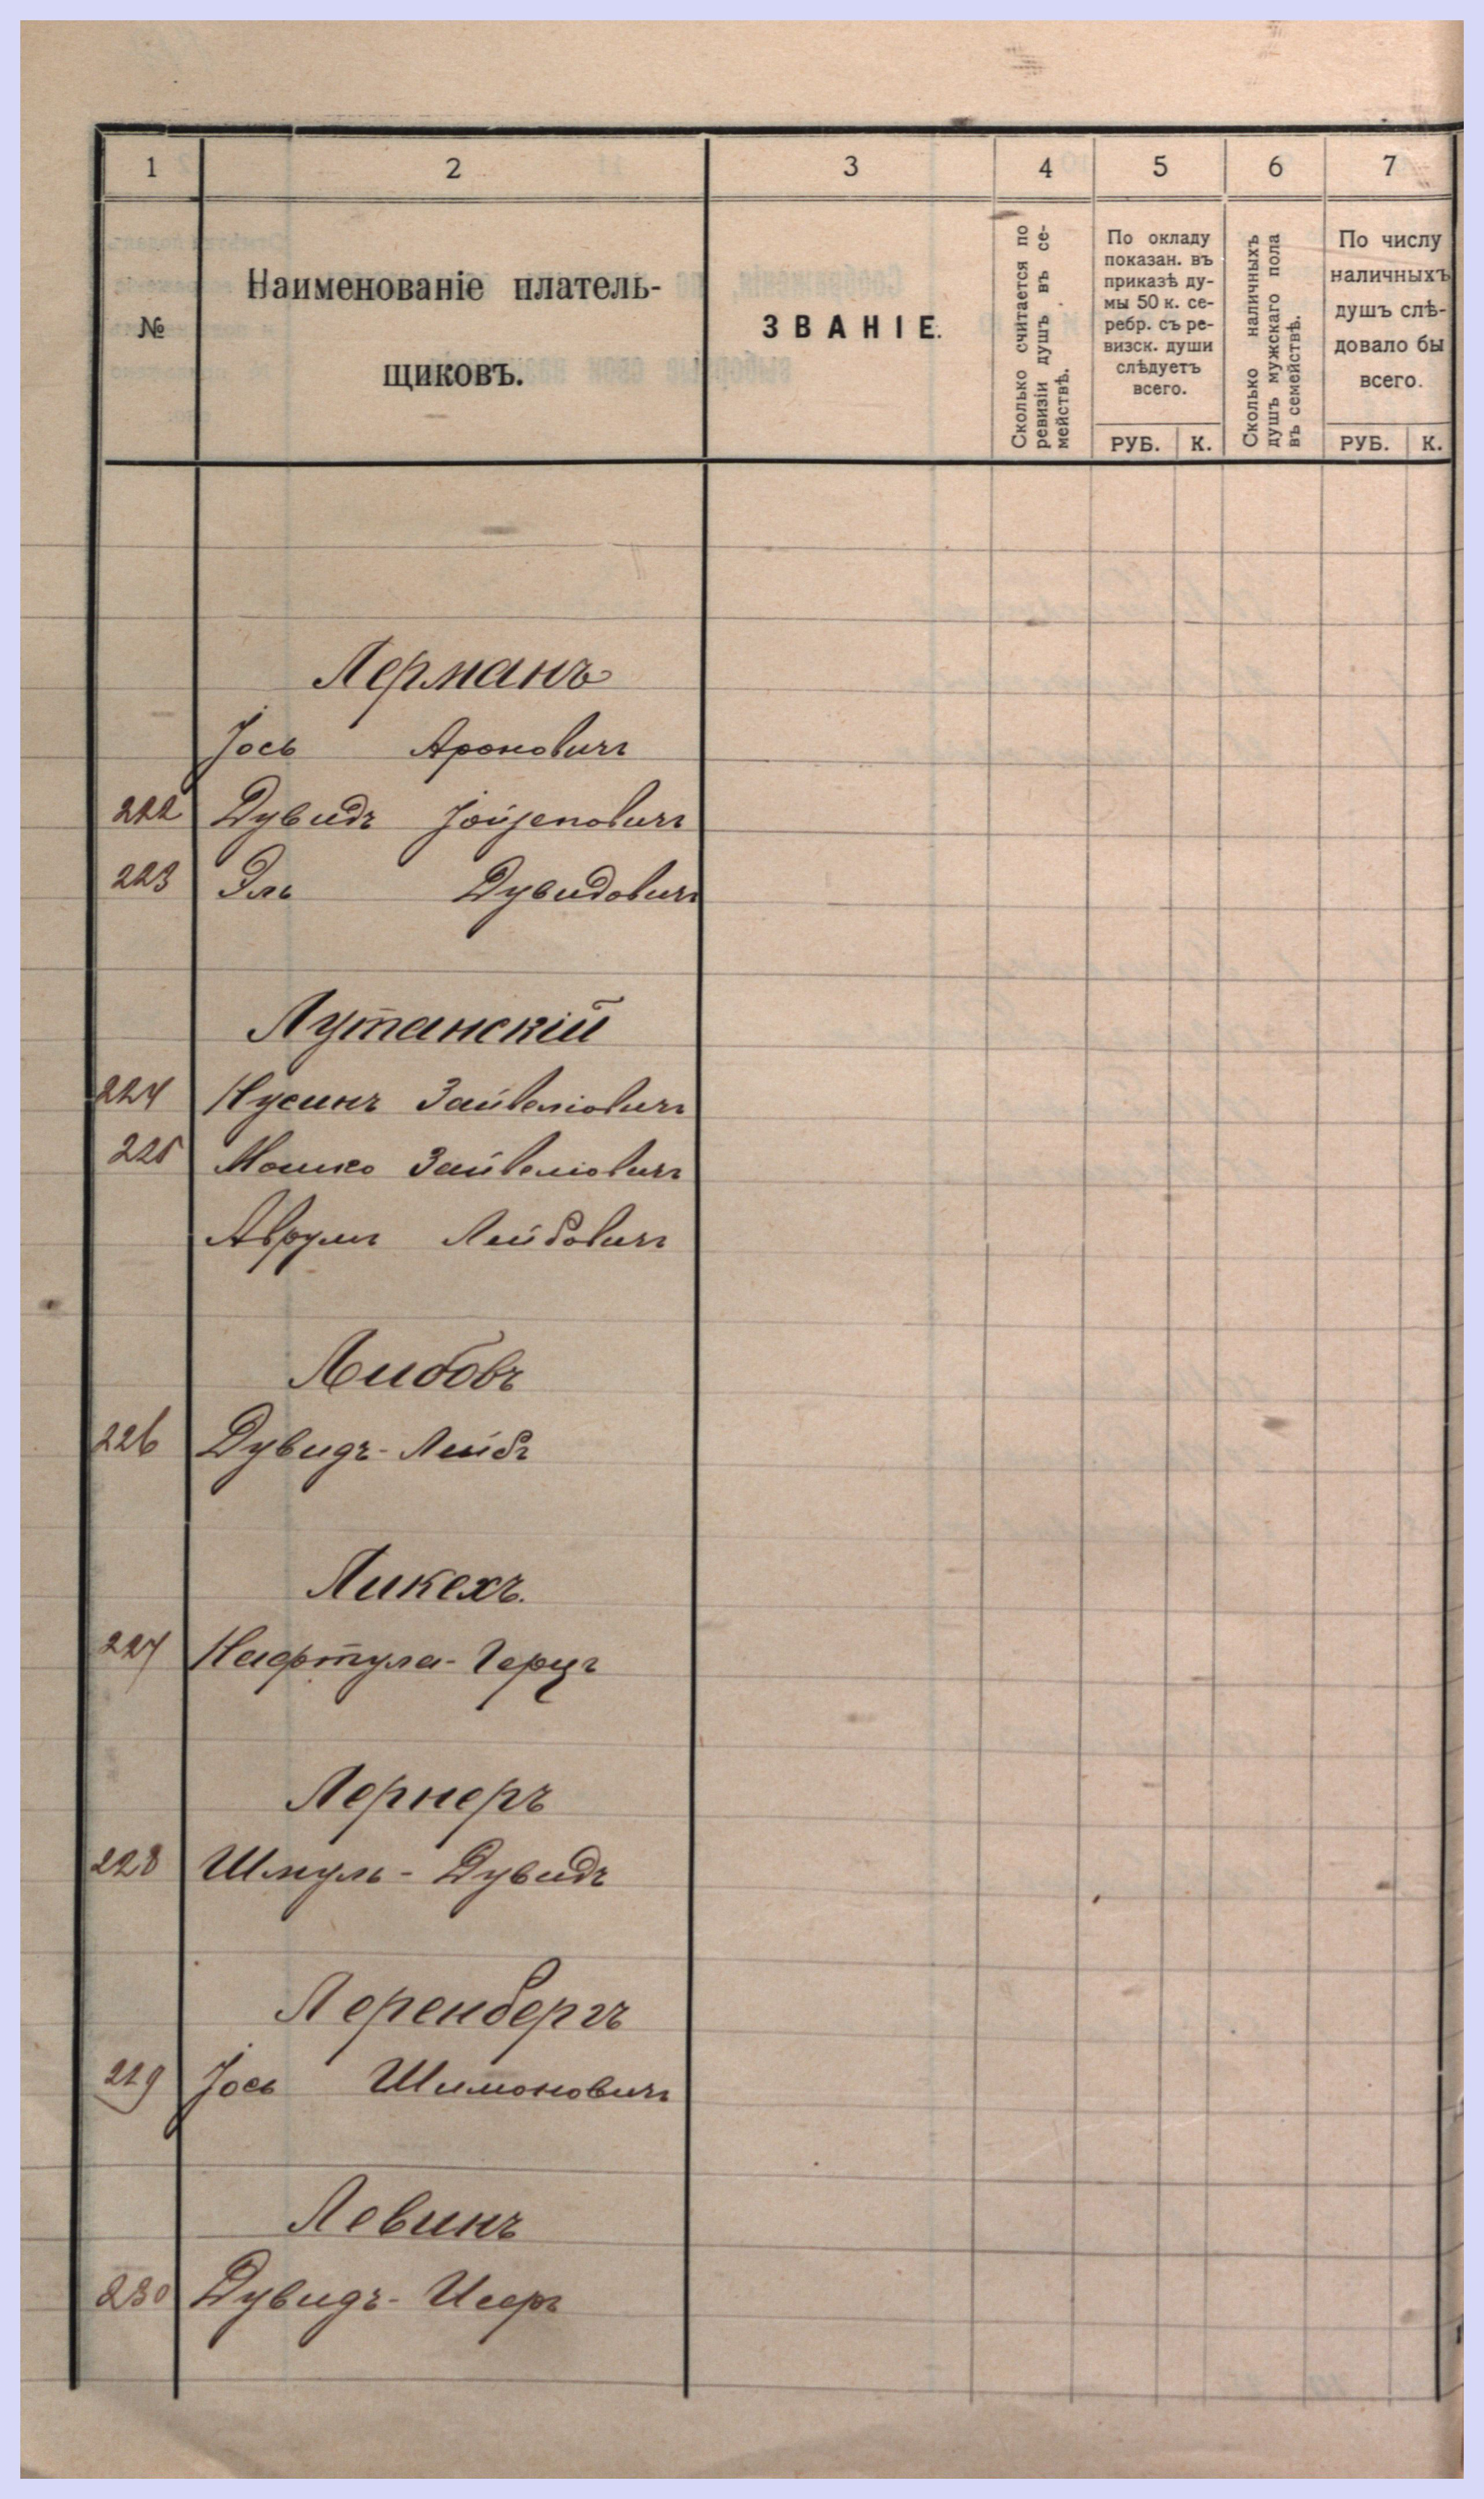 1 2 3 4 5 6 7
№
Наименованіе платель-
щиковъ.
ЗВАНІЕ.
Сколько считается по
ревизіи душъ въ се-
мействѣ.
По окладу
показан. въ
приказѣ ду-
мы 50 к. се-
ребр. съ ре-
визск. души
слѣдуетъ
всего.
РУБ. К.
Сколько наличныхъ
душъ мужскаго пола
въ семействѣ.
По числу
наличныхъ
душъ слѣ-
довало бы
всего.
РУБ. К.
Лерманъ
Іось Ароновичъ
222 Дувидъ
223 Эль Дувидовичъ
Лутанскій
224 Нусинъ Зайвеліовичъ
225 Мошко Зайвеліовичъ
Аврумъ Лейбовичъ
Либовъ
226 Дувидъ-Лейбъ
Ликехъ.
227 Нафтула-Герцъ
Лернеръ
228 Шмуль-Дувидъ
Леренбергъ
229 Іось Шимоновичъ
Левинъ
230 Дувидъ-Исеръ